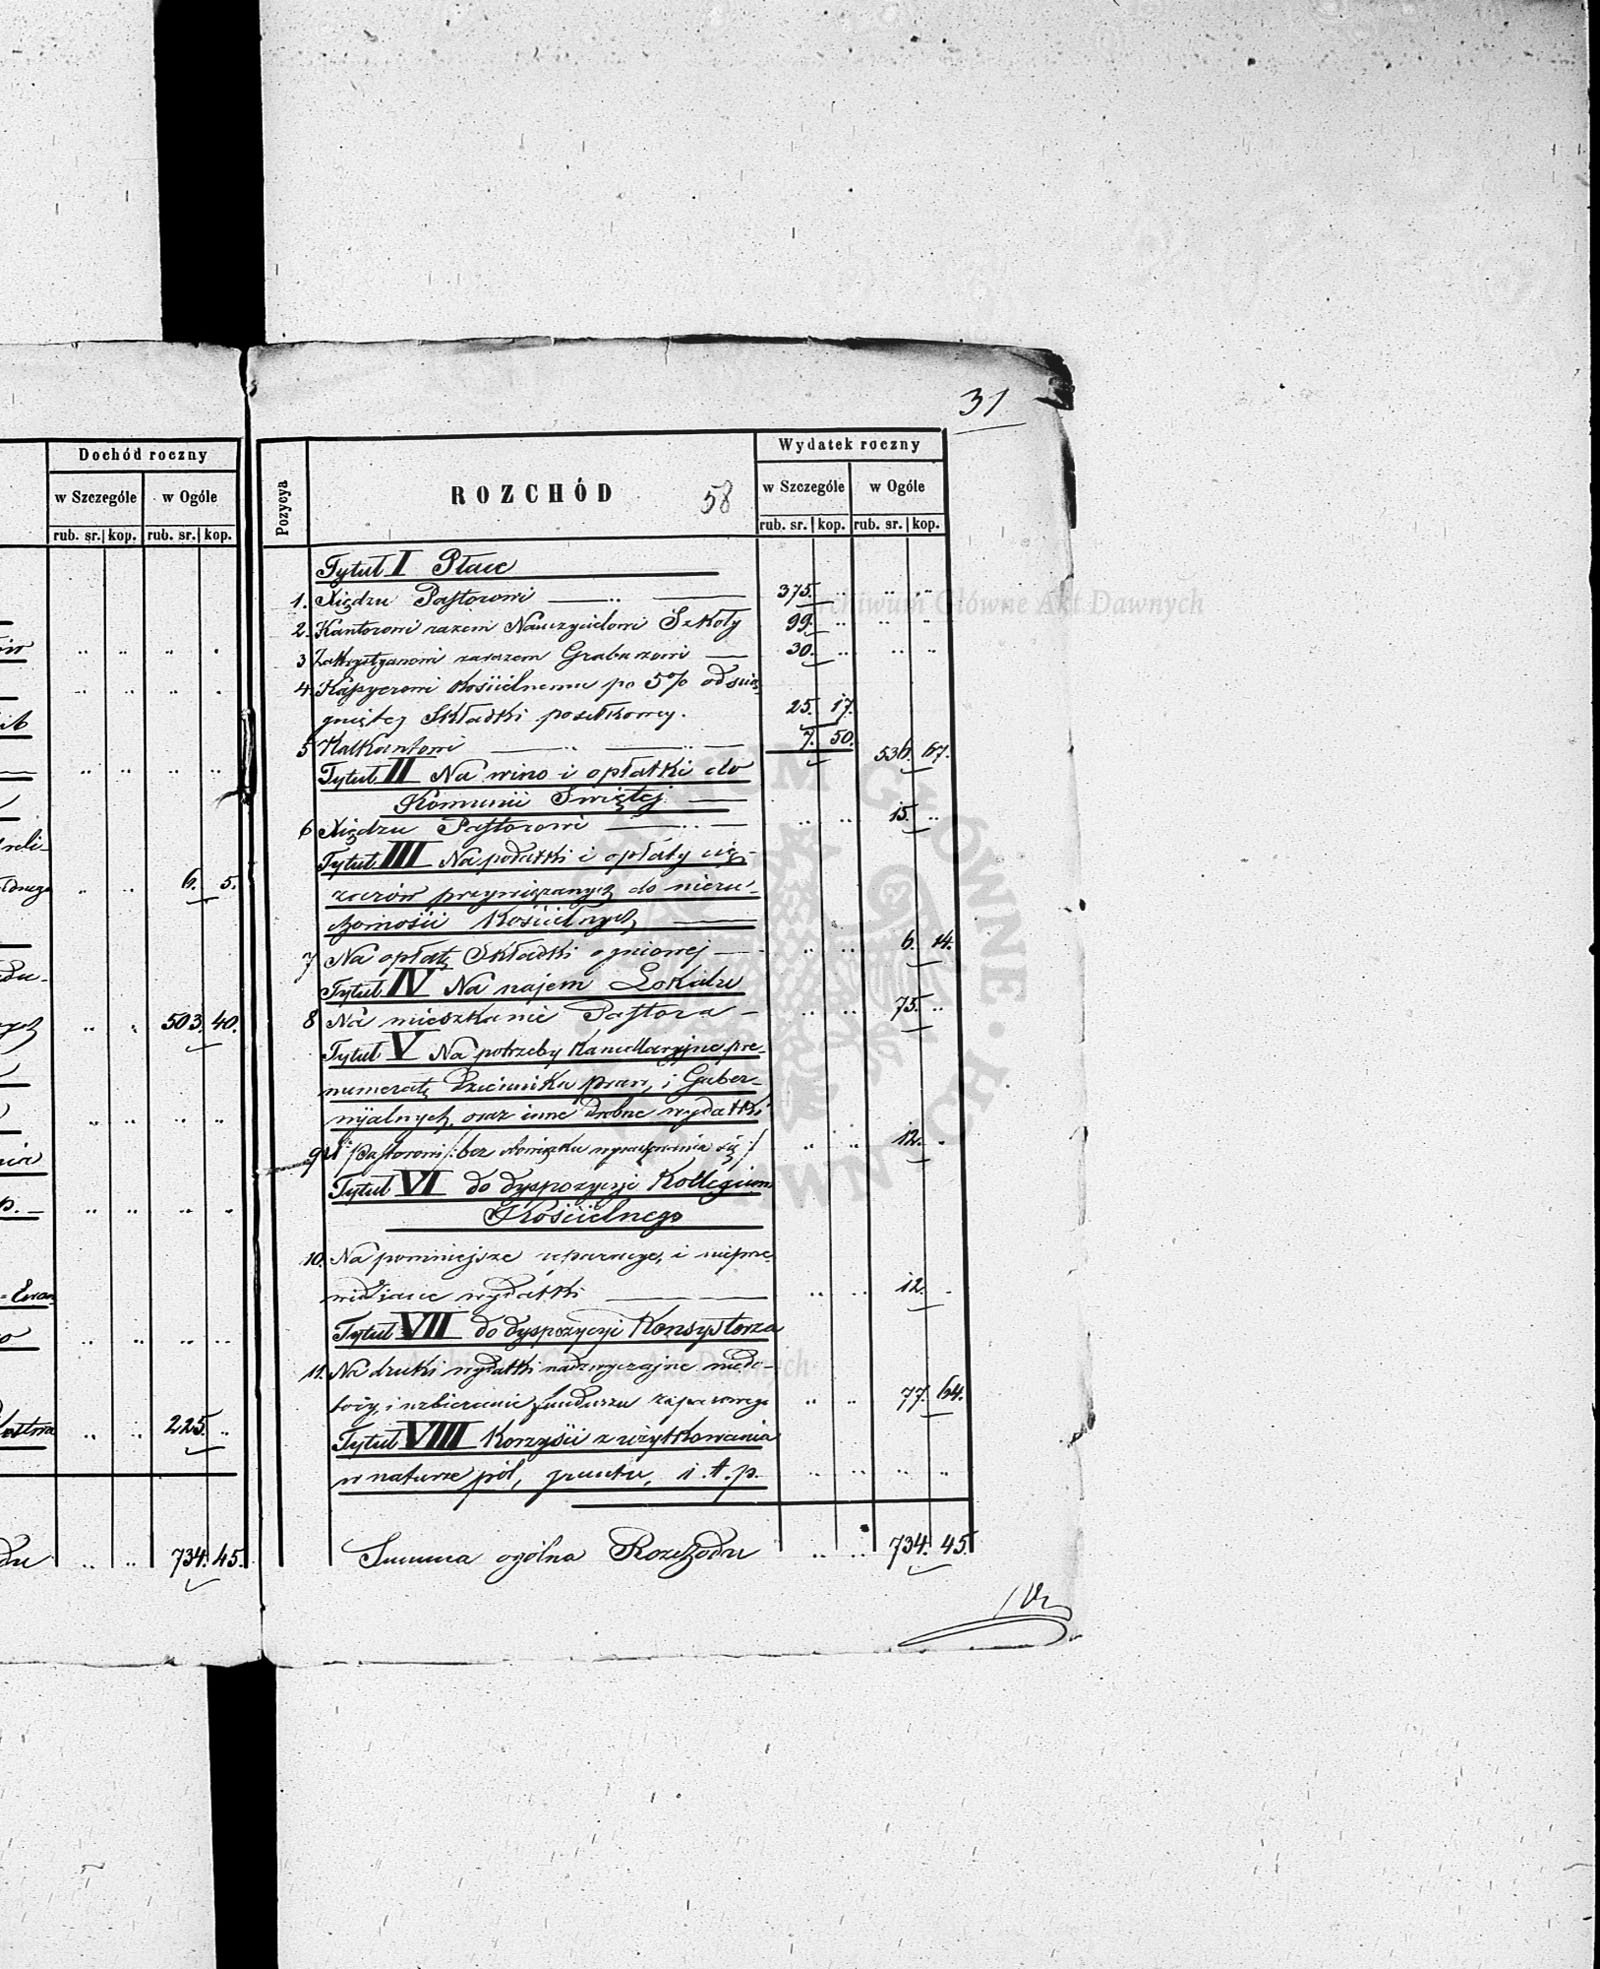 31
Dochód roczny
w Szczególe w Ogóle
rub. sr. kop. rub. sr. kop.
6. 5.
503. 40.
225. ..
734. 45.
Pozycya
ROZCHÓD
58
Wydatek roczny
w Szczególe w Ogóle
rub. sr. kop. rub. sr. kop.
Tytuł I Płace
1. Xiędzu Pastorowi 375. .. .. ..
2. Kantorowi razem Nauczycielowi Szkoły 99. .. .. ..
3 Zakrystyanowi zarazem Grabarzowi 30. .. .. ..
4. Kassyerowi Kościelnemu po 5% od scią-
gniętej Składki posiłkowey. 25. 17.
5 Kalkantowi 7. 50. 536. 67.
Tytuł II Na wino i opłatki do
Kommunii Swiętej
6 Xiędzu Pastorowi .. .. 15. ..
Tytuł III Na podatki i opłaty cię-
żarów przywiązanych do nieru-
chomości Kościelnych
7 Na opłatę Składki ogniowej .. .. 6. 14.
Tytuł IV Na najem Lokalu
8 Na mieszkanie Pastora .. .. 75. ..
Tytuł V Na potrzeby Kancellaryjne pre-
numeratę Dziennika praw, i Guber-
nijalnych, oraz inne drobne wydatki
9 X. Pastorowi /: bez obowiązku wyrachowania się :/ .. .. 12. .
Tytuł VI do dyspozycyi Kollegium
Kościelnego
10. Na pomniejsze reparacye, i nieprze-
widziane wydatki .. .. 12. .
Tytuł VII do dyspozycyi Konsystorza
11. Na druki wydatki nadzwyczajne niedo-
bory, i uzbieranie funduszu zapasowego .. .. 77. 64.
Tytuł VIII Korzyści z użytkowania
w naturze pól, gruntu, i. t. p. .. .. .. ..
Summa ogólna Rozchodu .. .. 734. 45.
Archiwum Główne Akt Dawnych